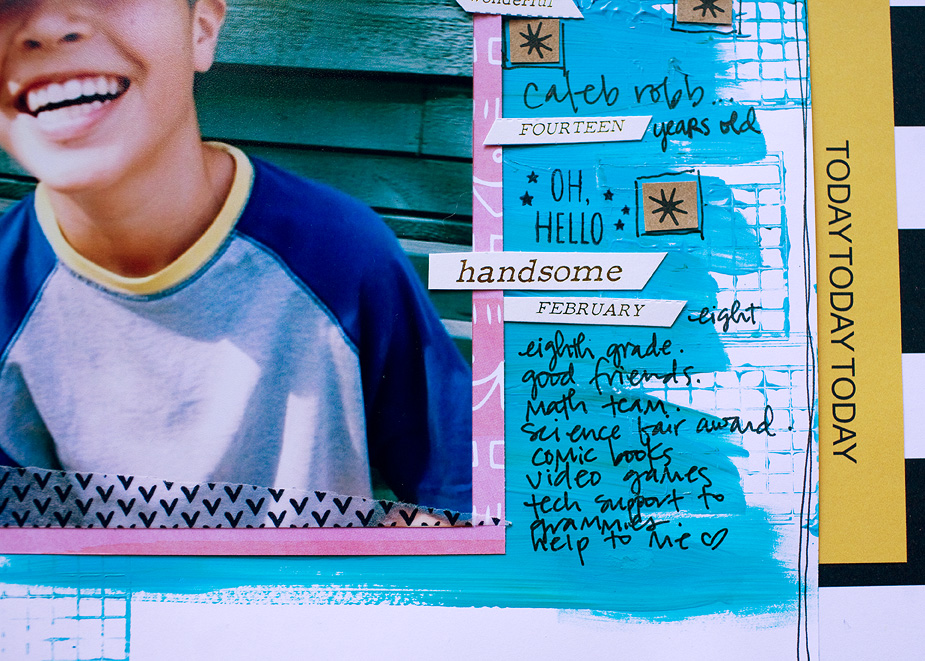 wonderful
caleb robb...
FOURTEEN years old
OH,
HELLO
handsome
FEBRUARY eight
eighth grade.
good friends.
math team.
science fair award.
comic books
video games
tech support to
grammies.
help to me ♡
TODAY TODAY TODAY TODAY